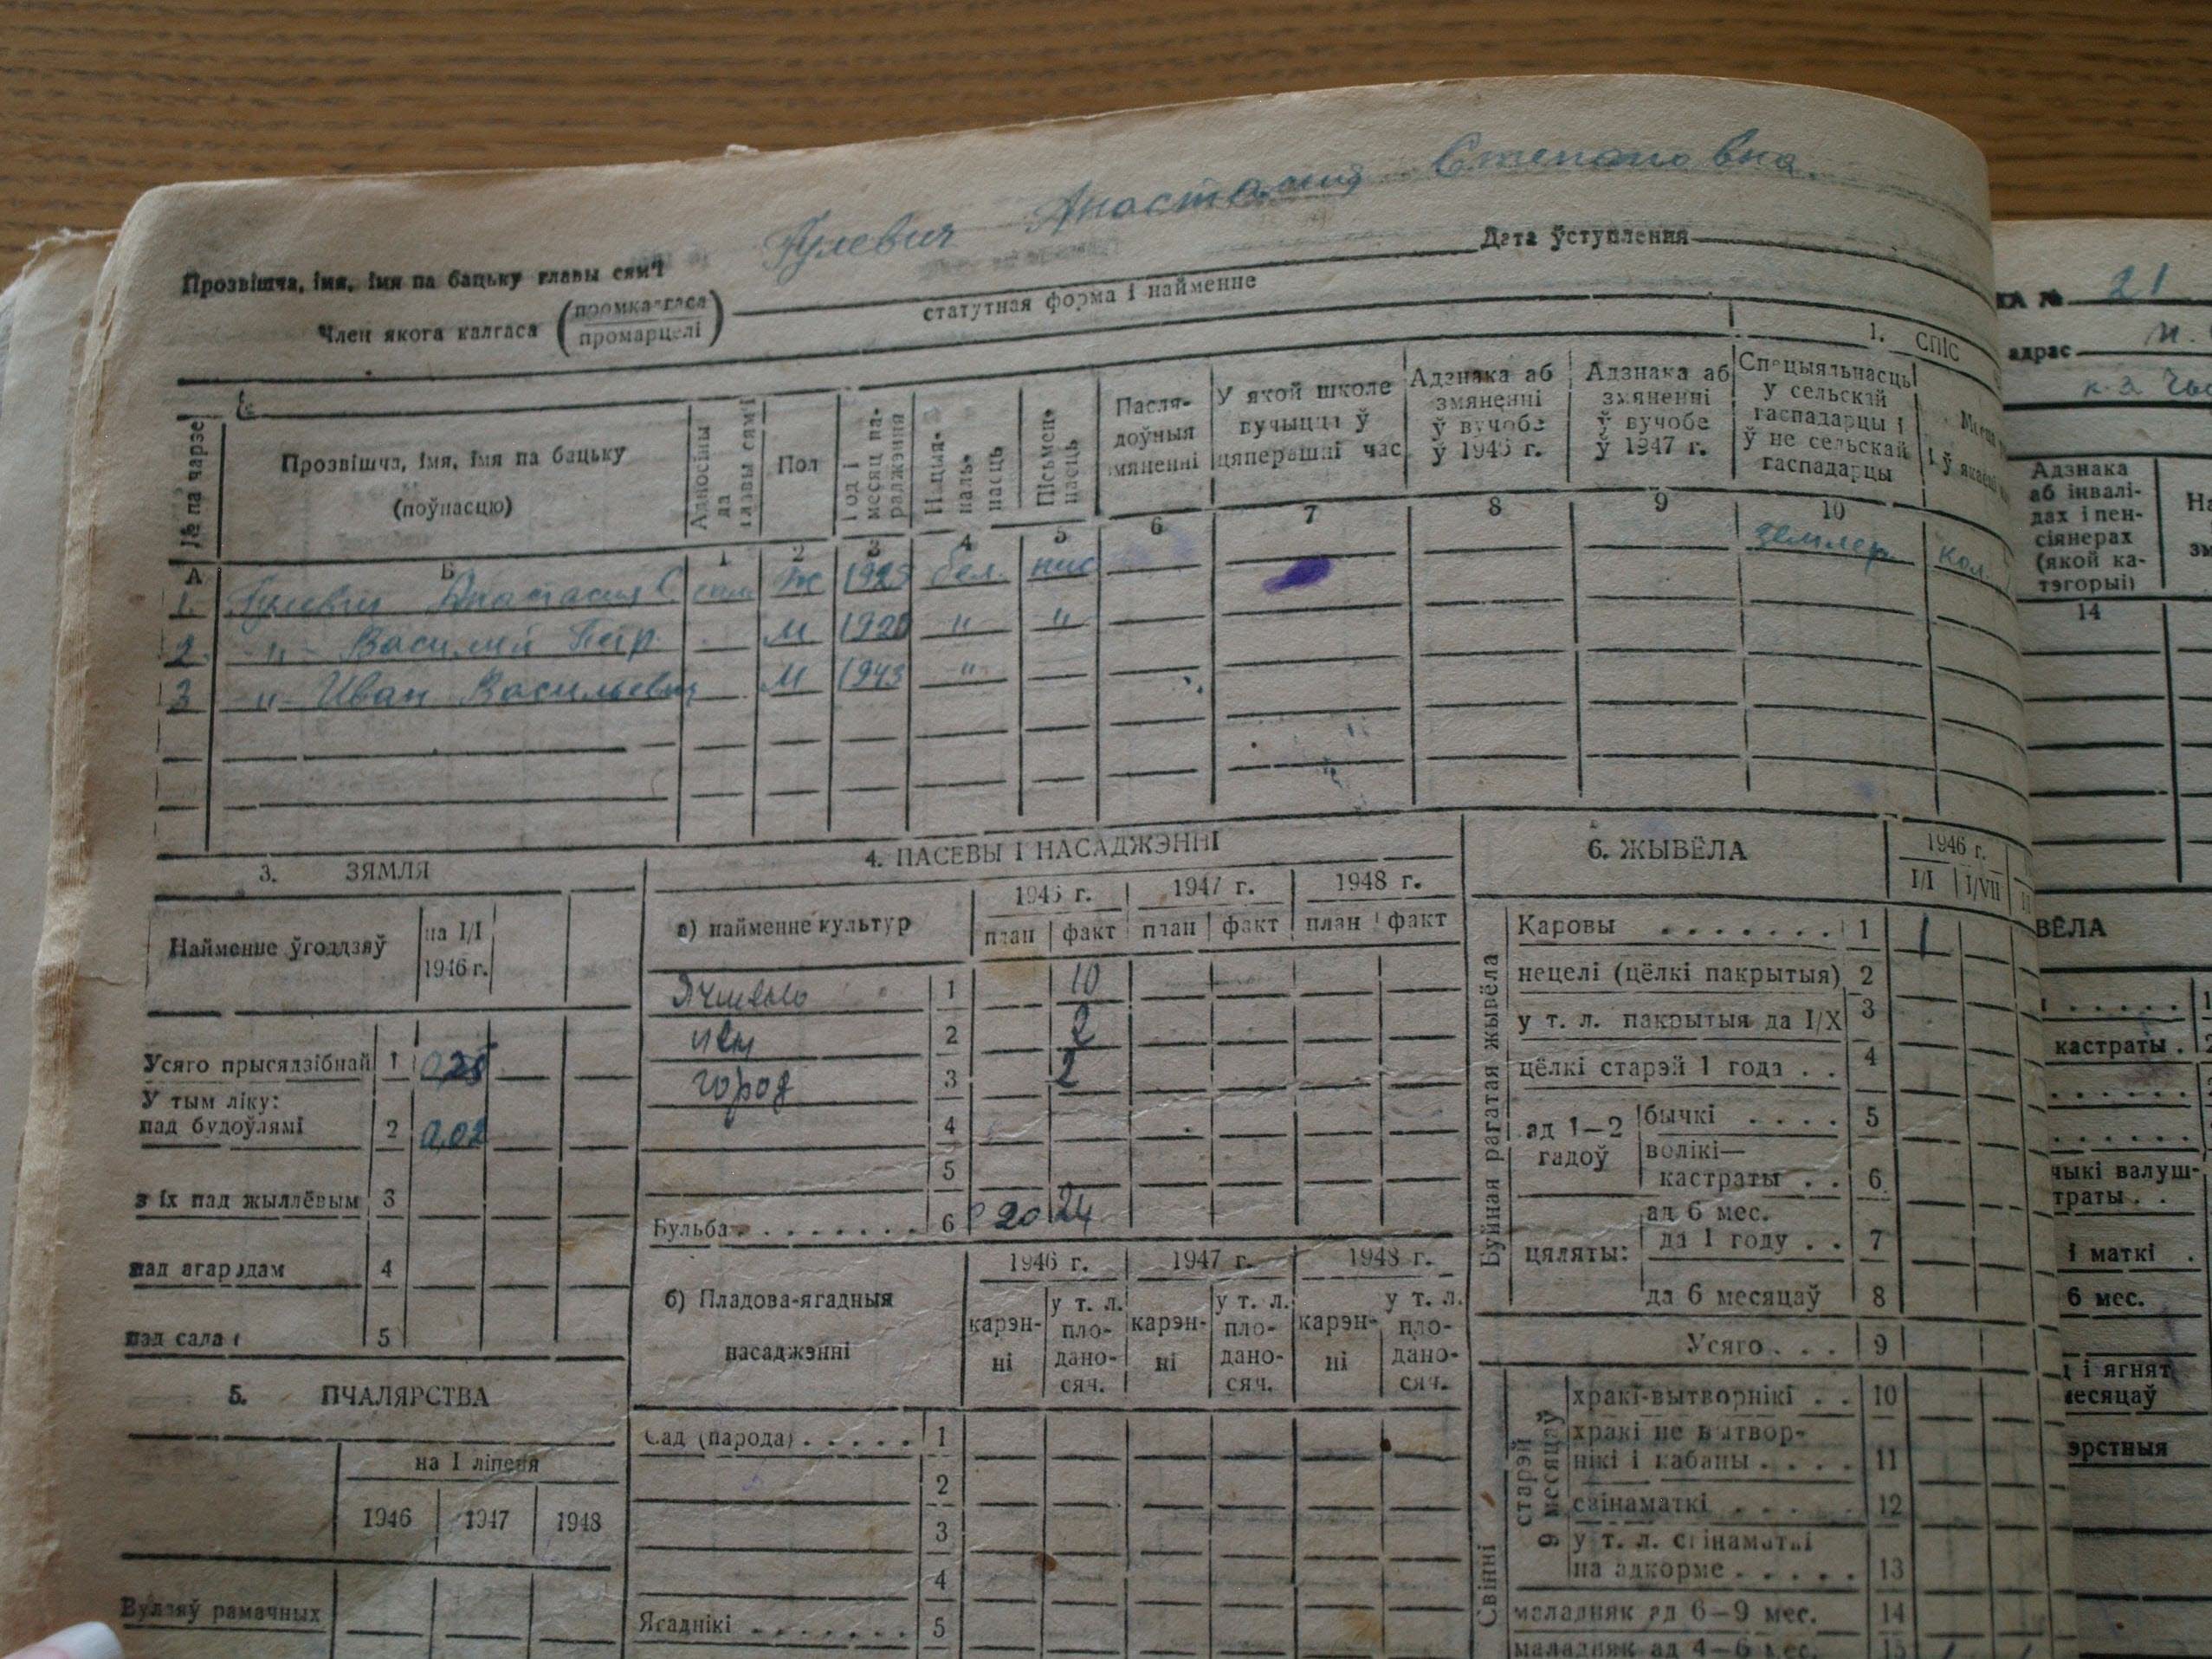 Гулевич Анастасия Степановна
Прозвішча, імя, імя па бацьку главы сям'і
Дата ўступлення
Член якога калгаса (промкалгаса / промарцелі)
статутная форма і найменне
1. СПІС
№ па чарзе
Прозвішча, імя, імя па бацьку (поўнасцю)
Адносіны да главы сям'і
Пол
Год і месяц нараджэння
Нацыянальнасць
Пісьменнасць
Пасля-
доўныя
змяненні
У якой школе
вучыцца ў
цяперашні час
Адзнака аб
змяненні
ў вучобе
ў 1946 г.
Адзнака аб
змяненні
ў вучобе
ў 1947 г.
Спецыяльнасць
у сельскай
гаспадарцы і
ў не сельскай
гаспадарцы
А Б 1 2 3 4 5 6 7 8 9 10
1. Гулевич Анастасия С. ж 1925 бел. пис землер кол.
2. -"- Василий Петр. М 1920 " "
3 -"- Иван Васильевич М 1943 "
3. ЗЯМЛЯ
Найменне ўгоддзяў
на I/I
1946 г.
Усяго прысядзібнай 1 0,25
У тым ліку:
пад будоўлямі 2 0,02
з іх пад жыллёвым 3
пад агародам 4
5
5. ПЧАЛЯРСТВА
на 1 ліпеня
1946 1947 1948
Вулляў рамачных
4. ПАСЕВЫ І НАСАДЖЭННІ
а) найменне культур
1946 г. 1947 г. 1948 г.
план факт план факт план факт
Ячмень 1 10
2 2
город 3 2
4
5
Бульба 6 20 24
б) Пладова-ягадныя
насаджэнні
1946 г. 1947 г. 1948 г.
карэн-
ні
у т. л.
пло-
дано-
сяч.
карэн-
ні
у т. л.
пло-
дано-
сяч.
карэн-
ні
у т. л.
пло-
дано-
сяч.
Сад (парода) 1
2
3
4
Ягаднікі 5
6. ЖЫВЁЛА
1946 г.
I/I I/VII
Буйная рагатая жывёла
Каровы 1 1
нецелі (цёлкі пакрытыя) 2
у т. л. пакрытыя да I/X 3
цёлкі старэй 1 года 4
ад 1—2
гадоў
бычкі 5
волікі—
кастраты 6
цяляты:
ад 6 мес.
да 1 году 7
да 6 месяцаў 8
Усяго 9
Свінні
старэй
9 месяцаў
хракі-вытворнікі 10
хракі не вытвор-
нікі і кабаны 11
свінаматкі 12
у т. л. свінаматкі
на адкорме 13
маладняк ад 6—9 мес. 14
маладняк ад 4—6 мес. 15
№ 21
адрас
Адзнака
аб інвалі-
дах і пен-
сіянерах
(якой ка-
тэгорыі)
14
ВЁЛА
кастраты
і маткі
6 мес.
і ягнят
месяцаў